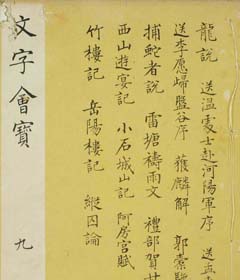 龍說 送溫處士赴河陽軍序 送
送李愿歸盤谷序 獲麟解 郭橐
捕蛇者說 雷塘禱雨文 禮部賀
西山遊宴記 小石城山記 阿房宮賦
竹樓記 岳陽樓記 縱囚論
文字會寶 九